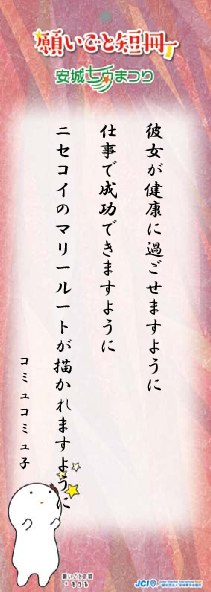 願いごと短冊
安城七夕まつり
彼女が健康に過ごせますように
仕事で成功できますように
ニセコイのマリールートが描かれますように
コミュコミュ子
願いごと短冊
JCI